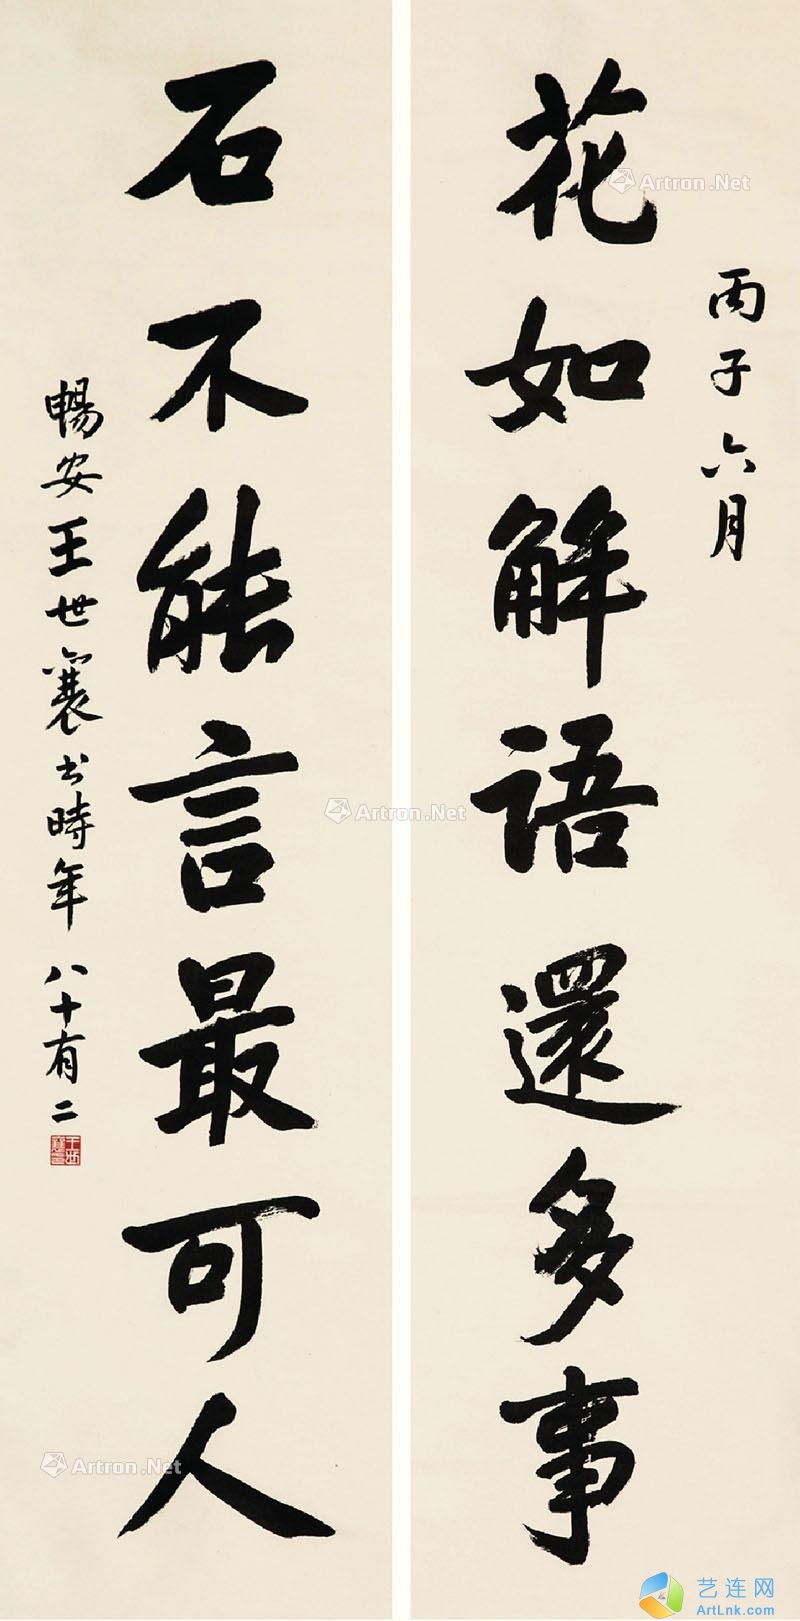 丙子六月
花如解語還多事
石不能言最可人
暢安王世襄书時年八十有二
Artron.Net
Artron.Net
Artron.Net
艺连网
ArtLnk.com